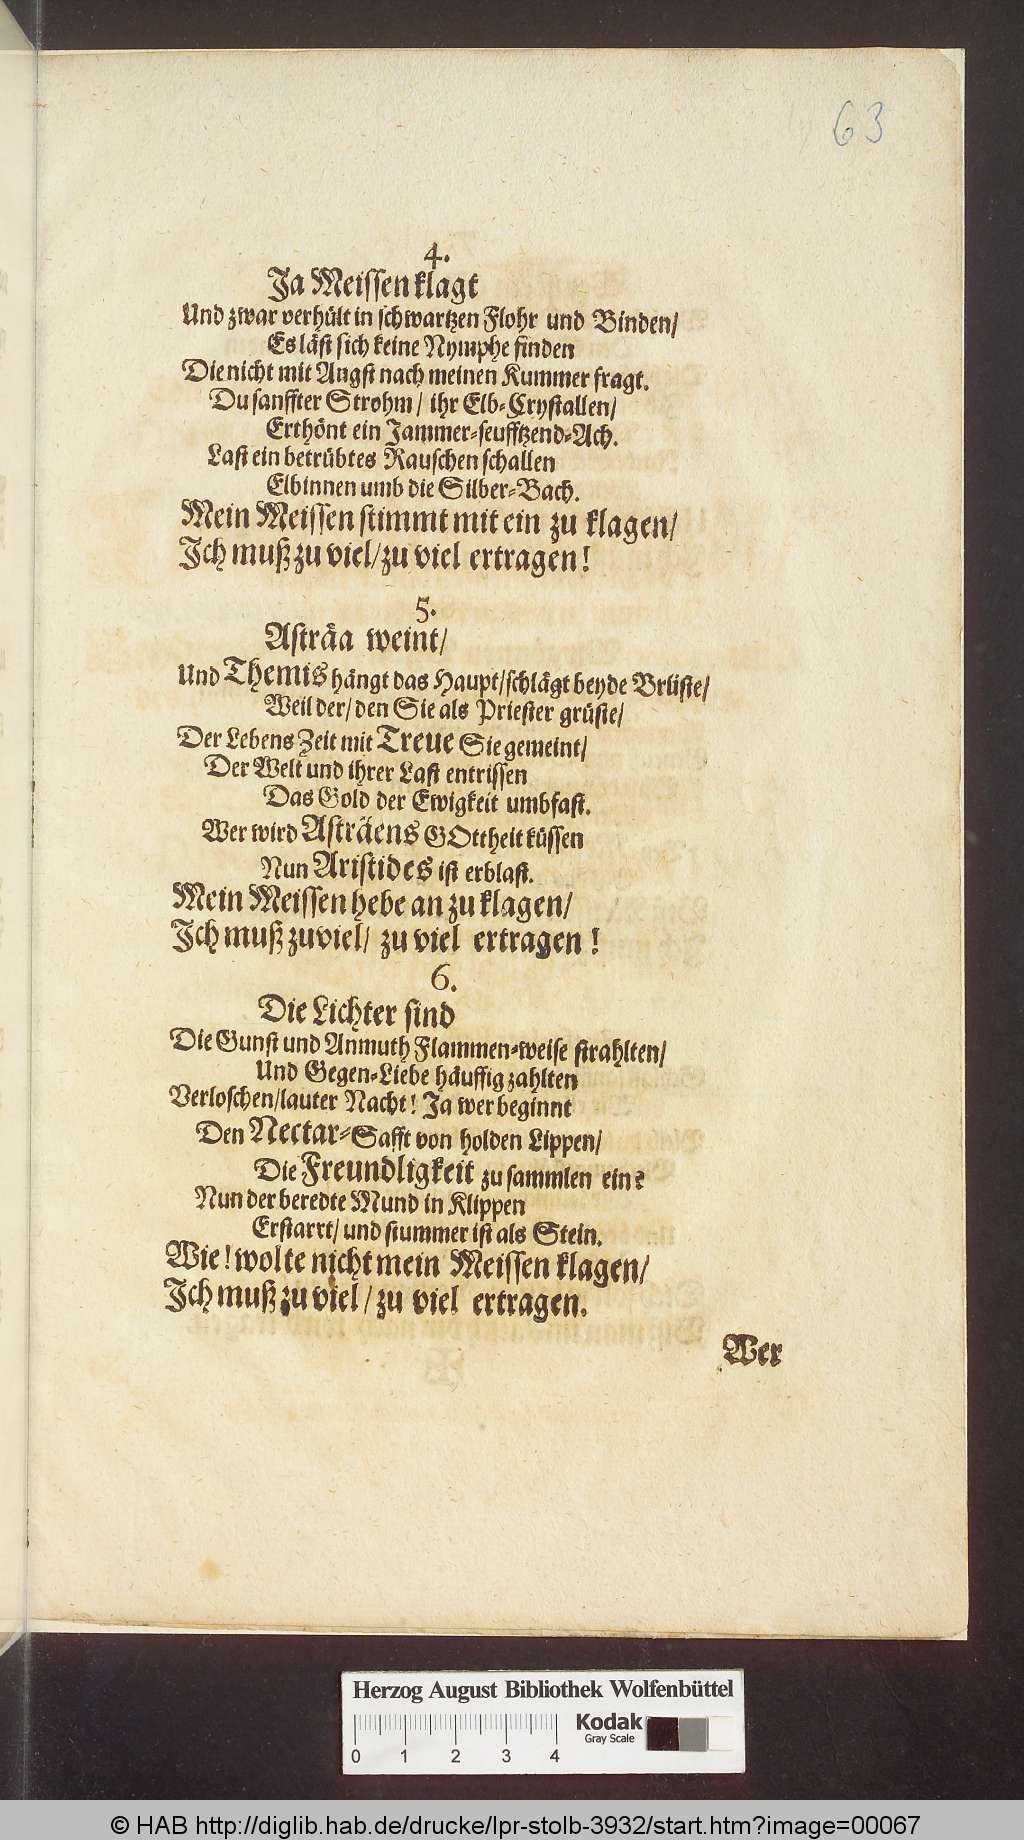 63
4.
Ja Meissen klagt
Und zwar verhült in schwartzen Flohr und Binden/
Es läst sich keine Nymphe finden
Die nicht mit Angst nach meinen Kummer fragt.
Du sanffter Strohm/ ihr Elb-Crystallen/
Erthönt ein Jammer-seufftzend-Ach.
Last ein betrübtes Rauschen schallen
Elbinnen umb die Silber-Bach.
Mein Meissen stimmt mit ein zu klagen/
Ich muß zu viel/ zu viel ertragen!
5.
Asträa weint/
Und Themis hängt das Haupt/ schlägt beyde Brüste/
Weil der/ den Sie als Priester grüste/
Der Lebens Zeit mit Treue Sie gemeint/
Der Welt und ihrer Last entrissen
Das Gold der Ewigkeit umbfast.
Wer wird Asträens GOttheit küssen
Nun Aristides ist erblast.
Mein Meissen hebe an zu klagen/
Ich muß zu viel/ zu viel ertragen!
6.
Die Lichter sind
Die Gunst und Anmuth Flammen-weise strahlten/
Und Gegen-Liebe häuffig zahlten
Verloschen/ lauter Nacht! Ja wer beginnt
Den Nectar-Safft von holden Lippen/
Die Freundligkeit zu sammlen ein?
Nun der beredte Mund in Klippen
Erstarrt/ und stummer ist als Stein.
Wie! wolte nicht mein Meissen klagen/
Ich muß zu viel/ zu viel ertragen.
Wer
Herzog August Bibliothek Wolfenbüttel
Kodak
Gray Scale
0 1 2 3 4
© HAB http://diglib.hab.de/drucke/lpr-stolb-3932/start.htm?image=00067